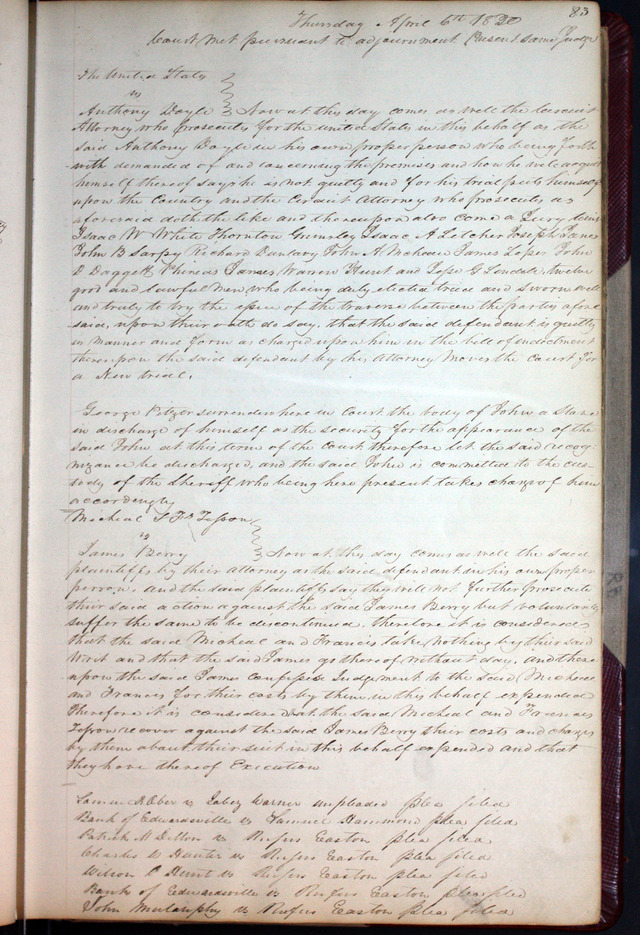 83
Thursday April 6th 1820
Court met pursuant to adjournment Present same Judge
The United States
vs
Anthony Doyle } Now at this day comes as well the Circuit
Attorney who prosecutes for the united States in this behalf as the
said Anthony Doyle in his own proper person who being forth
with demanded of and concerning the premises and how he will acquit
himself thereof says he is not guilty and for his trial puts himself
upon the Country and the Circuit Attorney who prosecutes as
aforesaid doth the like and thereupon also come a Jury towit
Isaac W White Thornton Grimsley Isaac A Letcher Joseph
John B Sarpy Richard Dunlavy John A James Loper John
D Daggett Phineas James Warren Hunt and Lope G twelve
good and lawful men who being duly elected tried and sworn well
and truly to try the issue of the traverse between the parties afore
said, upon their oath do say, that the said defendant is guilty
in manner and form as charged upon him in the bill of endictment
thereupon the said defendant by his Attorney Moves the court for
a New trial.
George Pitzer surrenders here in Court the body of John a Slave
in discharge of himself as the security for the appearance of the
said John at this term of the Court therefore let the said recog-
nizance be discharged, and the said John is committed to the cus-
tody of the Sheriff who being here present takes charge of him
accordingly
Micheal & Fs Tesson
vs
James Berry } Now at this day comes as well the said
plaintiffs by their attorney as the said defendant in his own proper
person, and the said plaintiffs say they will not further prosecute
their said action against the said James Berry but voluntarily
suffer the same to be discontinued. therefore it is considered
that the said Micheal and Francis take nothing by their said
Writ and that the said James go thereof without day, and there
upon the said James confesses Judgement to the said Micheal
and Frances for their costs by them in this behalf expended
Therefore it is considered that the said Micheal and Frances
Tesson recover against the said James Berry their costs and charges
by them about their suit in this behalf expended and that
they have thereof Execution
Samuel vs Jabez Warner plea filed
Bank of Edwardsville vs Samuel Hammond plea filed
Patrick M Dillon vs Rufus Easton plea filed
Charles W Hunter vs Rufus Easton plea filed
Wilson P Hunt vs Rufus Easton plea filed
Bank of Edwardsville vs Rufus Easton plea filed
John Mulanphy vs Rufus Easton plea filed